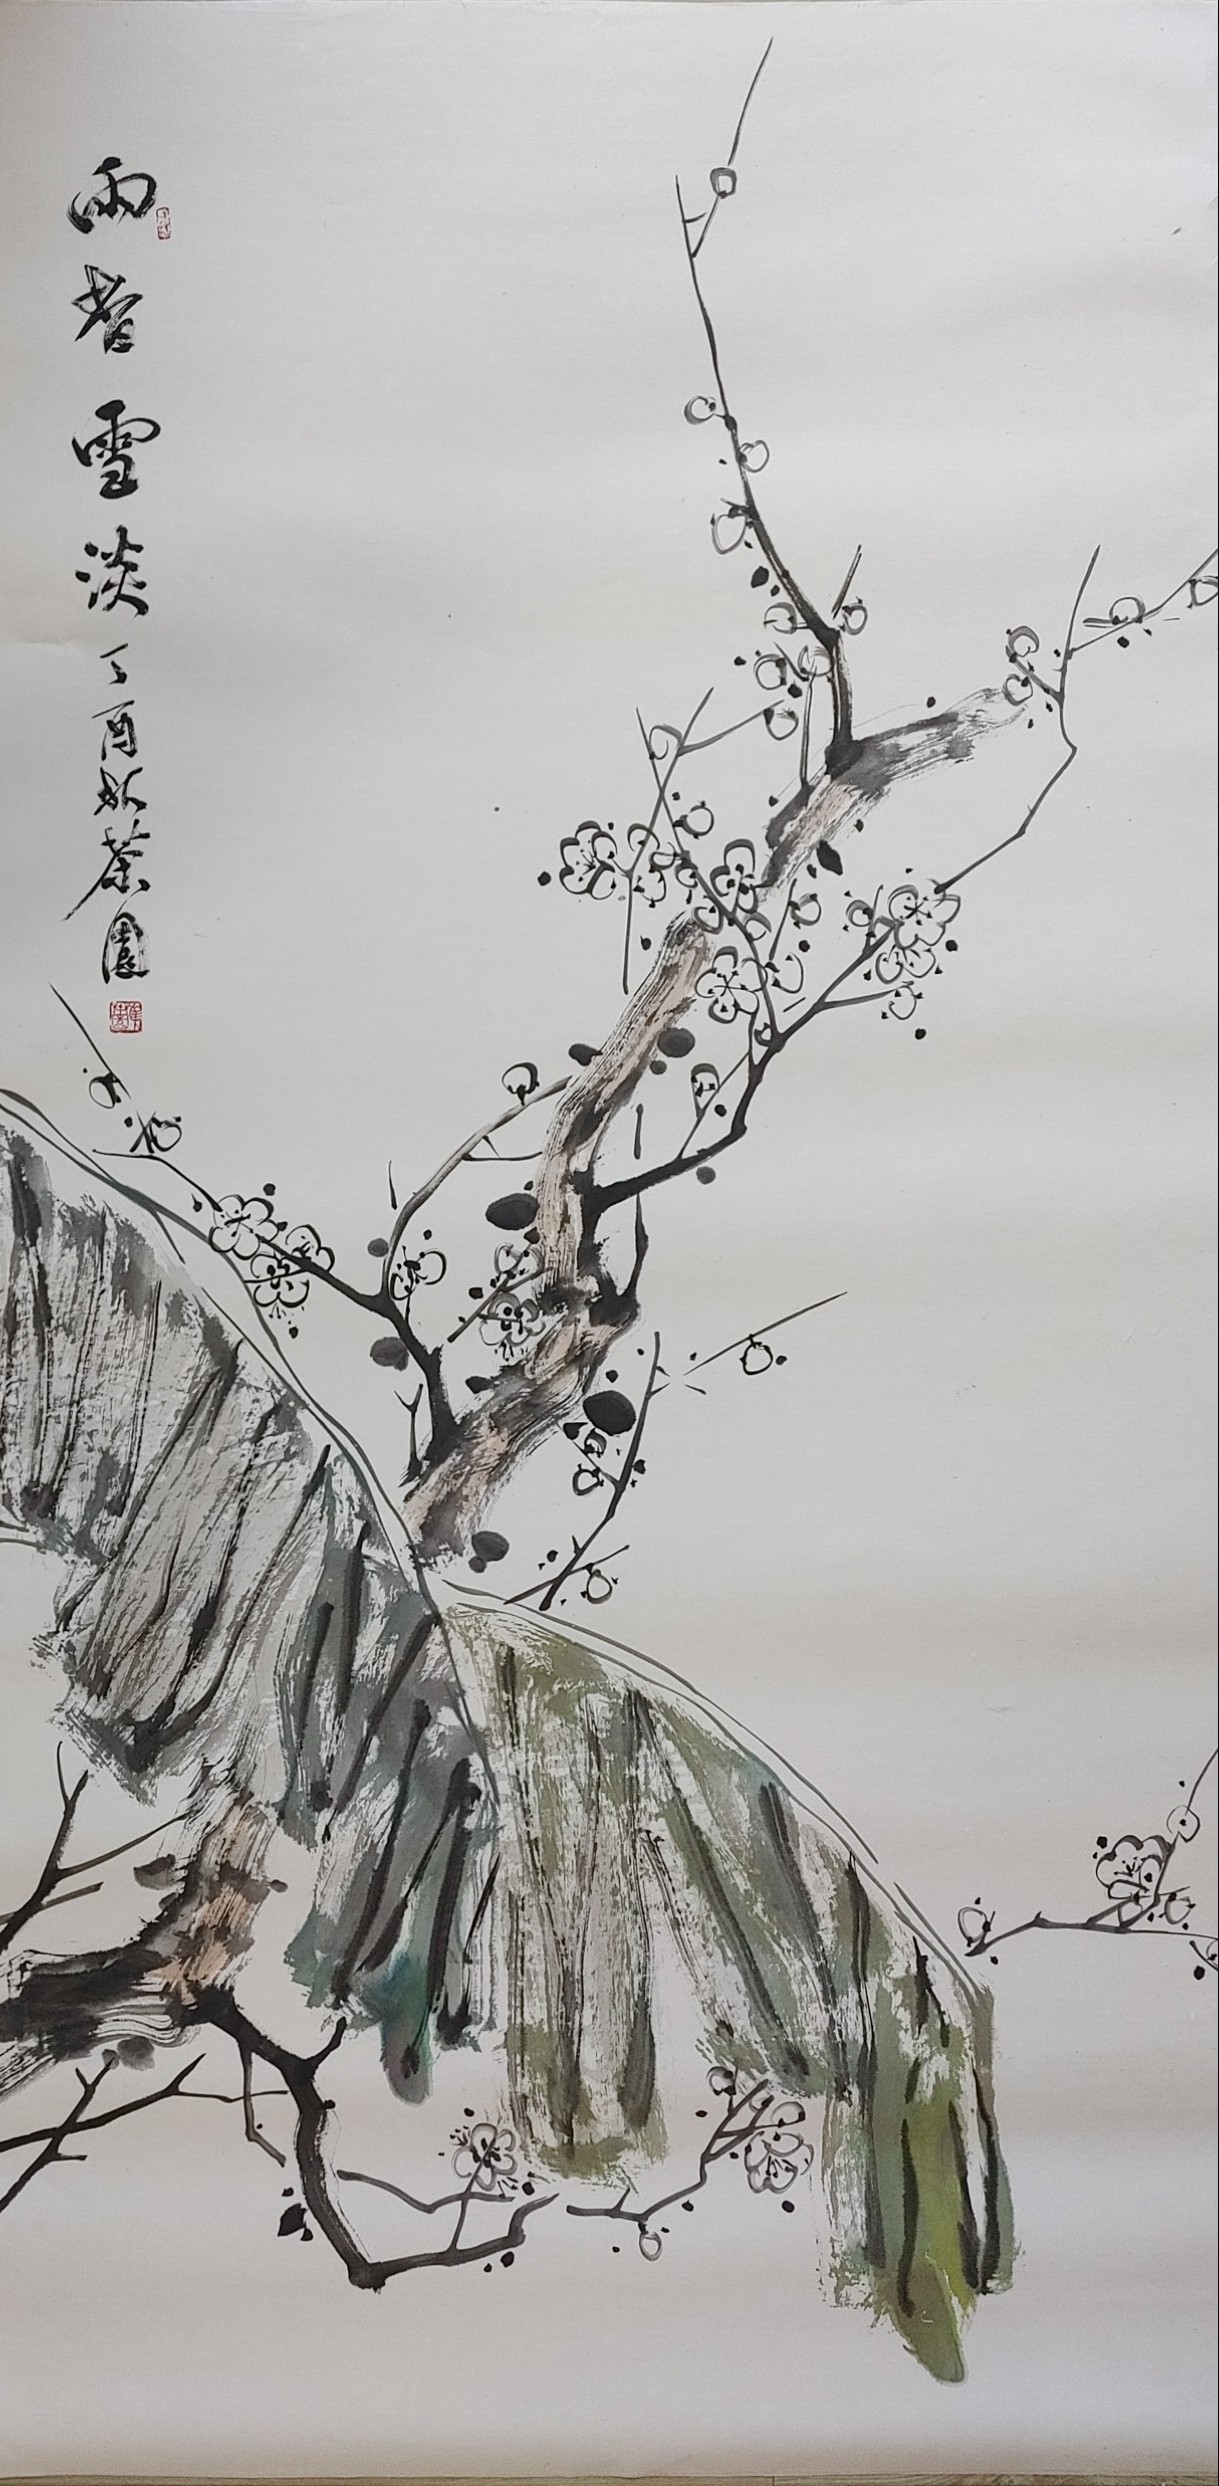 雨香雪淡丁酉秋茶園